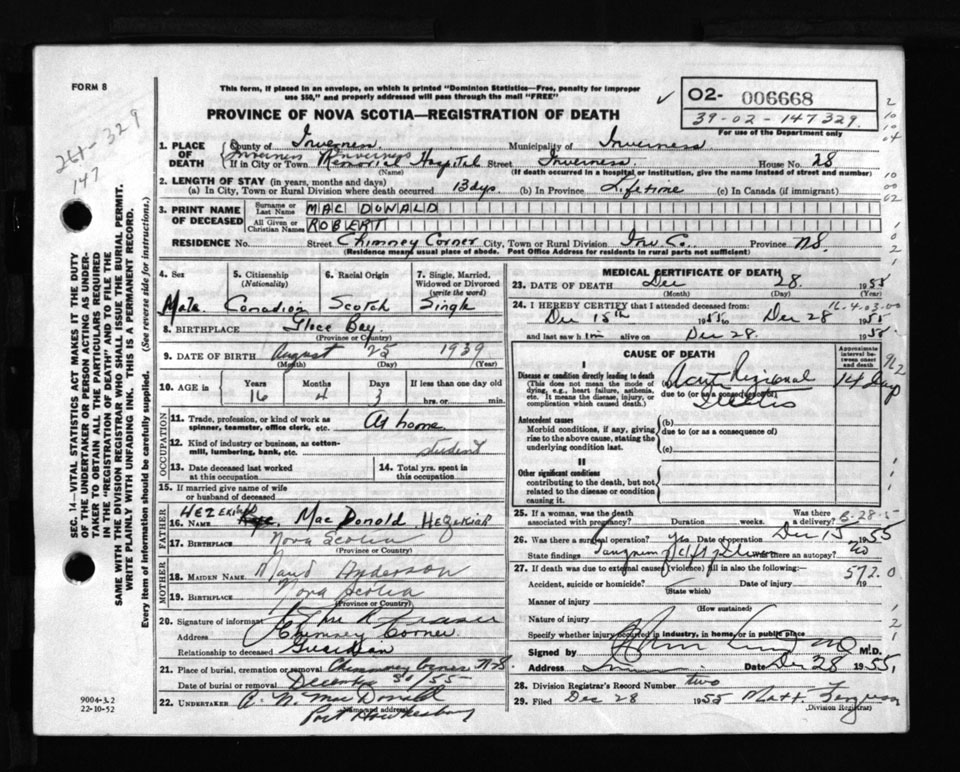 FORM 8
This form, if placed in an envelope, on which is printed "Dominion Statistics—Free, penalty for improper
use $50," and properly addressed will pass through the mail "FREE"
PROVINCE OF NOVA SCOTIA—REGISTRATION OF DEATH
✓ 02- 006668
39-02-147329.
For use of the Department only
264-329
147
SEC. 14—VITAL STATISTICS ACT MAKES IT THE DUTY
OF THE UNDERTAKER OR PERSON ACTING AS UNDER-
TAKER TO OBTAIN ALL THE PARTICULARS REQUIRED
IN THE "REGISTRATION OF DEATH" AND TO FILE THE
SAME WITH THE DIVISION REGISTRAR WHO SHALL ISSUE THE BURIAL PERMIT.
WRITE PLAINLY WITH UNFADING INK. THIS IS A PERMANENT RECORD.
Every item of information should be carefully supplied. (See reverse side for instructions.)
1. PLACE OF DEATH
County of Inverness. Municipality of Inverness
If in City or Town Inverness Memorial Hospital Street Inverness. House No. 28
(Name) (If death occurred in a hospital or institution, give the name instead of street and number)
2. LENGTH OF STAY (in years, months and days)
(a) In City, Town or Rural Division where death occurred 13 dys. (b) In Province Lifetime (c) In Canada (if immigrant)
3. PRINT NAME OF DECEASED
Surname or Last Name MAC DONALD
All Given or Christian Names ROBERT
RESIDENCE No. Street Chimney Corner City, Town or Rural Division Inv. Co. Province N.S.
(Residence means usual place of abode. Post Office Address for residents in rural parts not sufficient)
4. Sex Male
5. Citizenship (Nationality) Canadian
6. Racial Origin Scotch
7. Single, Married, Widowed or Divorced (write the word) Single
8. BIRTHPLACE Glace Bay
(Province or Country)
9. DATE OF BIRTH August 25 1939
(Month) (Day) (Year)
10. AGE in Years 16 Months 4 Days 3 If less than one day old hrs. or min.
OCCUPATION
11. Trade, profession, or kind of work as spinner, teamster, office clerk, etc. At home
12. Kind of industry or business, as cotton-mill, lumbering, bank, etc. student
13. Date deceased last worked at this occupation
14. Total yrs. spent in this occupation
15. If married give name of wife or husband of deceased
FATHER
HEZEKIAH
16. NAME MacDonald HEZEKIAH
17. BIRTHPLACE Nova Scotia
(Province or Country)
MOTHER
18. MAIDEN NAME Maud Anderson
19. BIRTHPLACE Nova Scotia
(Province or Country)
20. Signature of informant
Address Chimney Corner
Relationship to deceased Guardian
21. Place of burial, cremation or removal Chimney Corner N.S
Date of burial or removal December 30/55
22. UNDERTAKER MacDonald
(Name and address)
Port Hawkesbury
9004-3.2
22-10-52
MEDICAL CERTIFICATE OF DEATH
23. DATE OF DEATH Dec 28. 1955
(Month) (Day) (Year)
16-4-03.00
24. I HEREBY CERTIFY that I attended deceased from:
Dec 15th 1955 to Dec 28 1955
and last saw him alive on Dec 28. 1955
CAUSE OF DEATH
Approximate interval between onset and death
I
Disease or condition directly leading to death
(This does not mean the mode of dying, e.g., heart failure, asthenia, etc. It means the disease, injury, or complication which caused death.)
Acute Regional 14 days
due to (or as a consequence of)
Antecedent causes
Morbid conditions, if any, giving rise to the above cause, stating the underlying condition last.
(b)
due to (or as a consequence of)
(c)
II
Other significant conditions
contributing to the death, but not related to the disease or condition causing it.
25. If a woman, was the death associated with pregnancy? Duration weeks. Was there a delivery?
26. Was there a surgical operation? yes Date of operation Dec 15 1955
State findings Was there an autopsy? No
27. If death was due to external causes (violence) fill in also the following:—
572.0
Accident, suicide or homicide? Date of injury 19
(State which)
Manner of injury
(How sustained)
Nature of injury
Specify whether injury occurred in industry, in home, or in public place
Signed by M.D.
Address Date Dec 28 1955
28. Division Registrar's Record Number two
29. Filed Dec 28 1955
(Division Registrar)